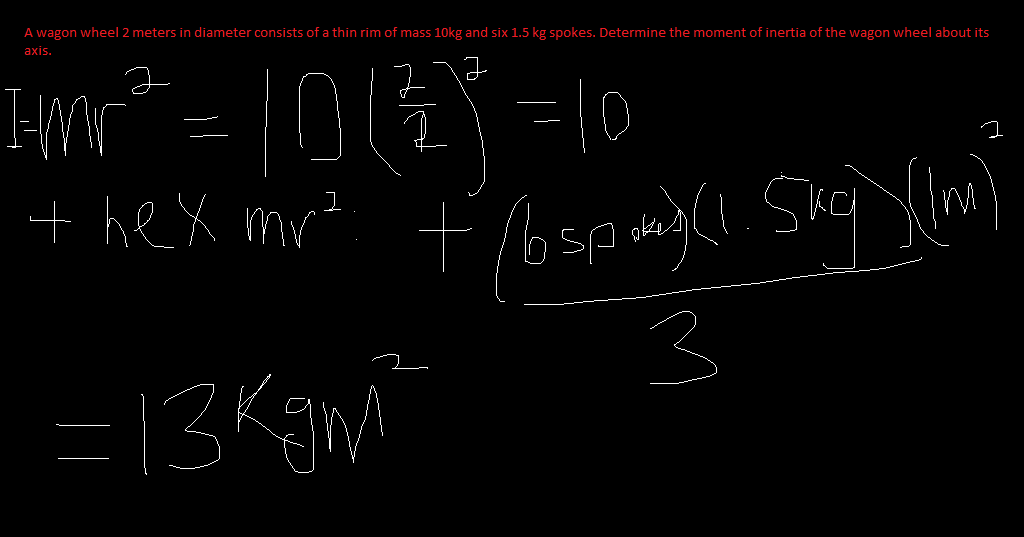 A wagon wheel 2 meters in diameter consists of a thin rim of mass 10kg and six 1.5 kg spokes. Determine the moment of inertia of the wagon wheel about its
axis.
I=mr² = 10(2/2)² = 10
+ hex mr²: + (6 spokes)(1.5kg)(1m)²
3
= 13 kgm²